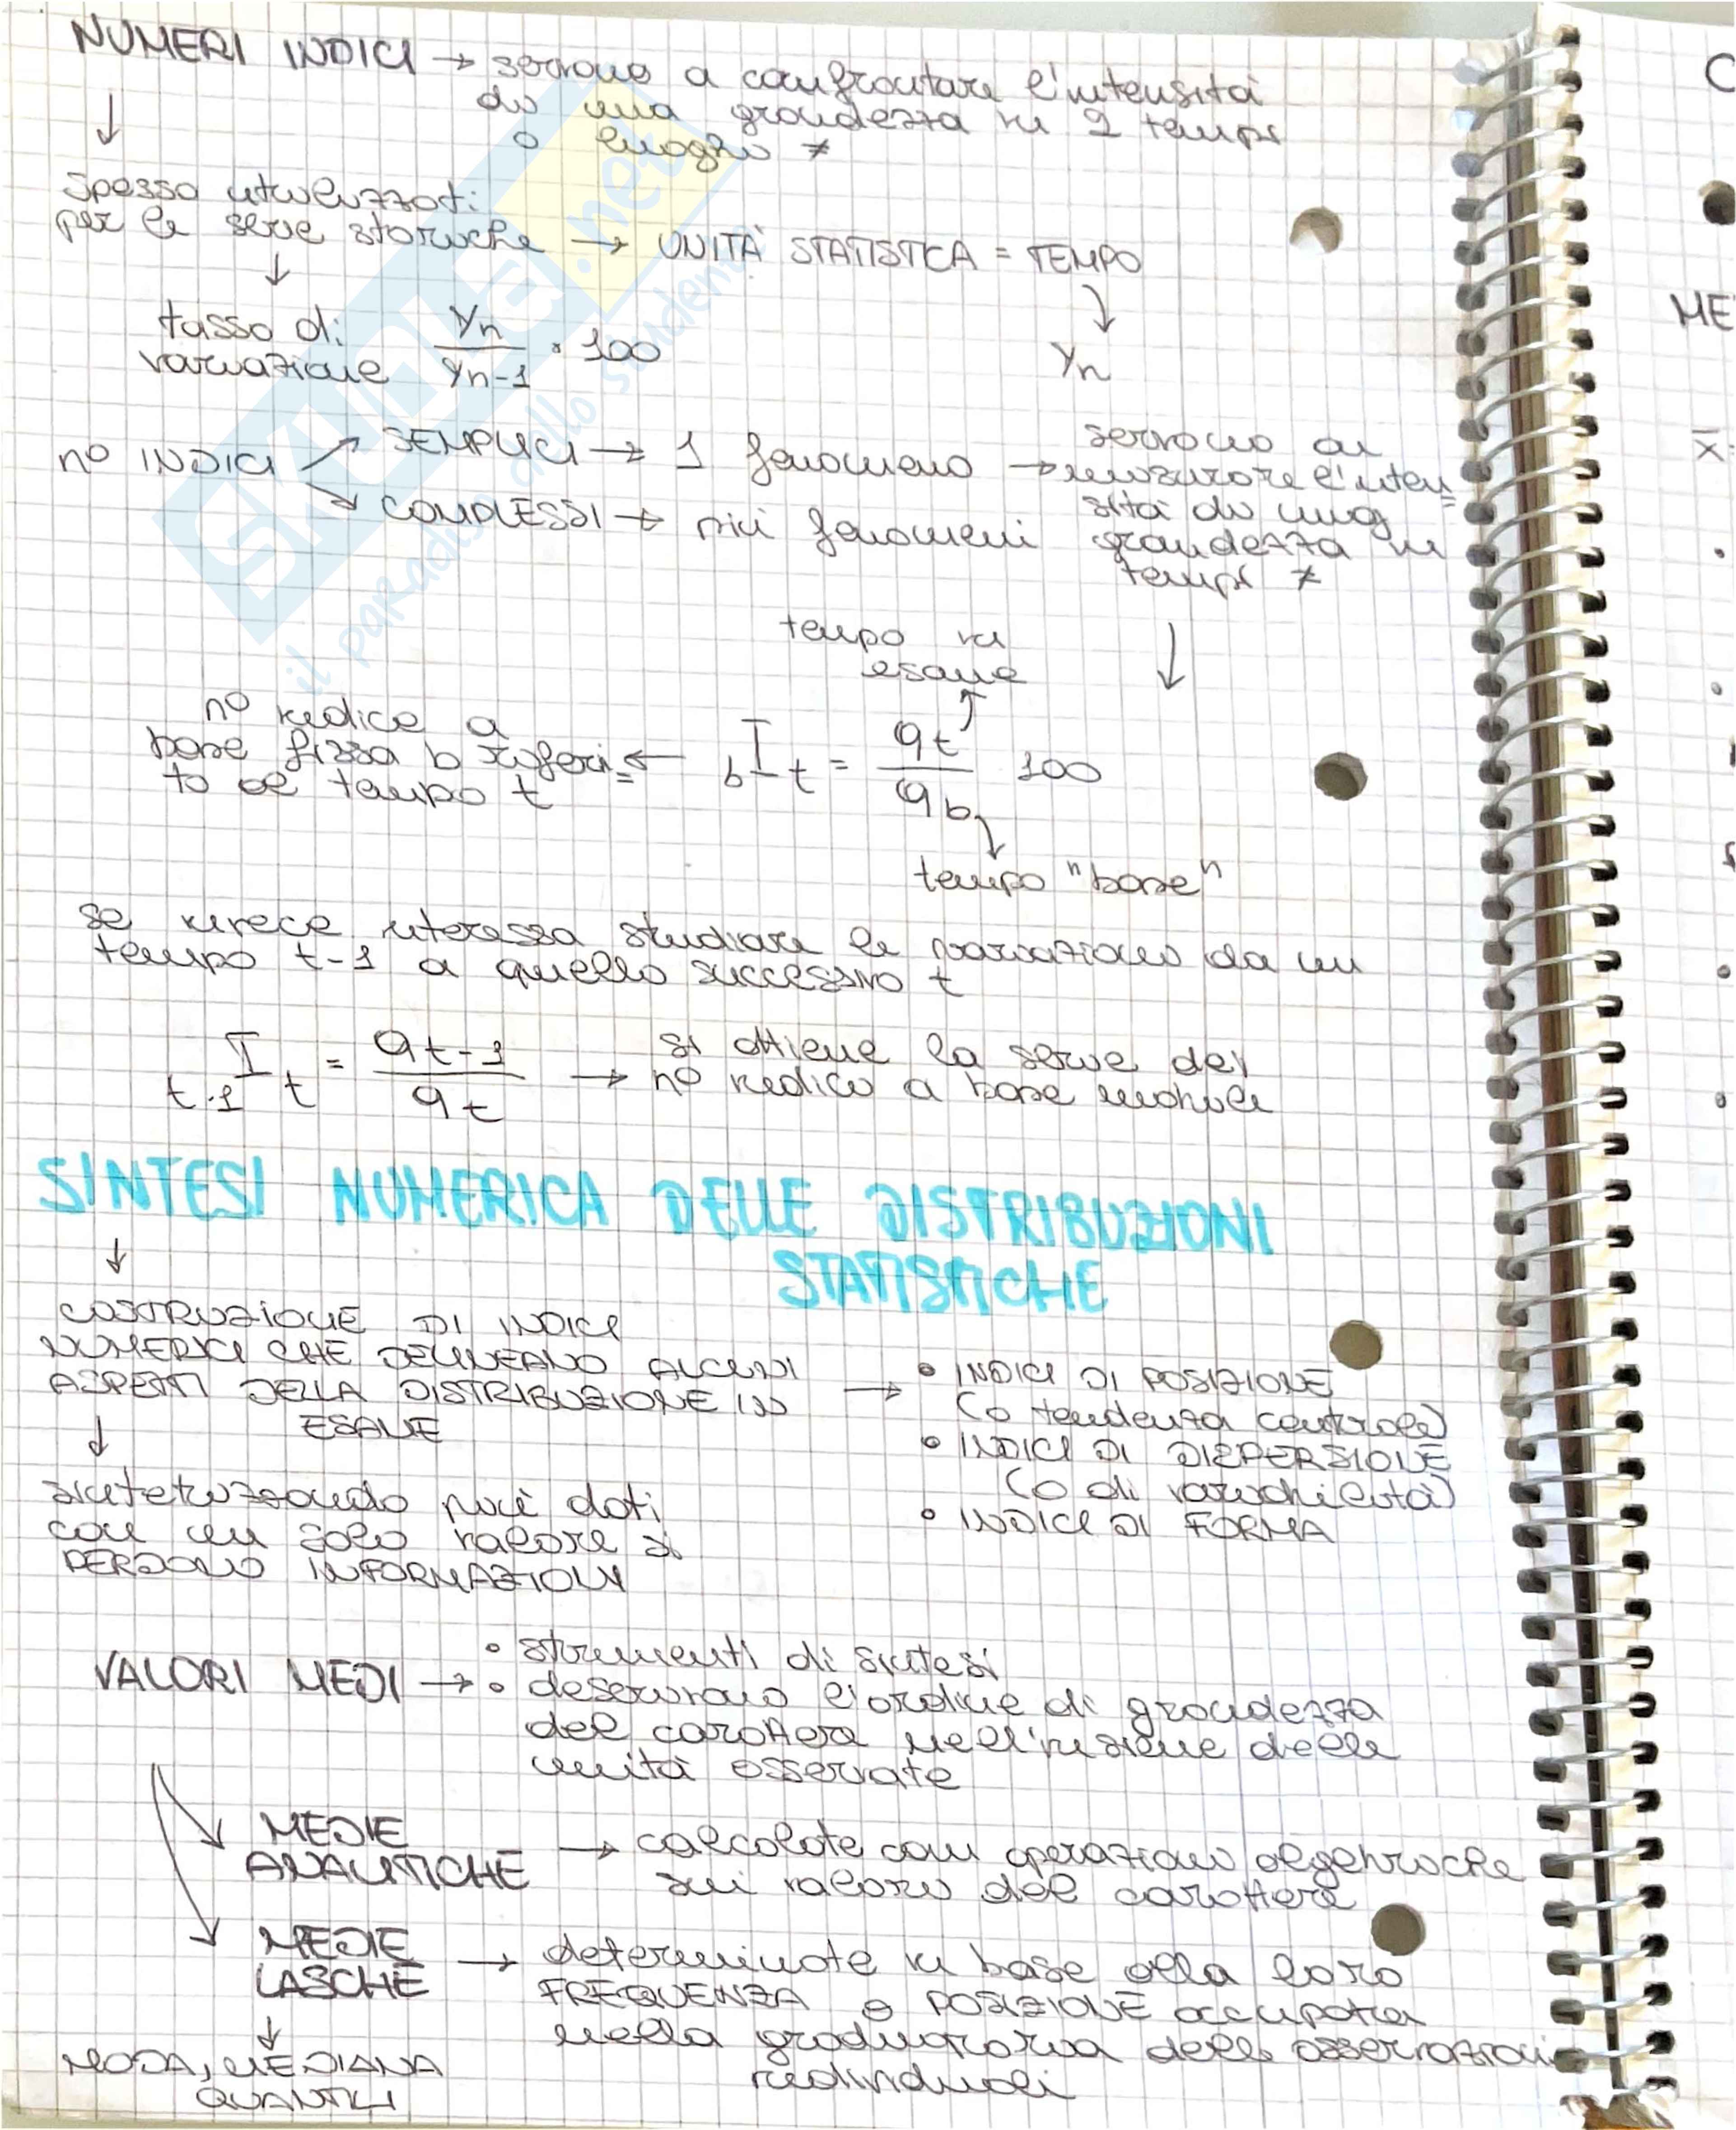 NUMERI INDICI → servono a confrontare l'intensità
di una grandezza in 2 tempi
o luoghi ≠
↓
spesso utilizzati
per le serie storiche → UNITÀ STATISTICA = TEMPO
↓
tasso di variazione yn / yn-1 · 100
yn
n° INDICI
↗ SEMPLICI → 1 fenomeno → servono a
misurare l'inten=
sità di una
grandezza in
tempi ≠
↘ COMPLESSI → più fenomeni
↓
tempo in
esame
↑
n° indice a
base fissa b riferi=
to al tempo t
← bIt = qt / qb 100
↓
tempo "base"
se invece interessa studiare le variazioni da un
tempo t-1 a quello successivo t
t-1It = qt-1 / qt → si ottiene la serie dei
n° indici a base mobile
SINTESI NUMERICA DELLE DISTRIBUZIONI
STATISTICHE
↓
COSTRUZIONE DI INDICI
NUMERICI CHE DELINEANO ALCUNI
ASPETTI DELLA DISTRIBUZIONE IN
ESAME
→ • INDICI DI POSIZIONE
(o tendenza centrale)
• INDICI DI DISPERSIONE
(o di variabilità)
• INDICI DI FORMA
↓
sintetizzando più dati
con un solo valore si
PERDONO INFORMAZIONI
VALORI MEDI → • strumenti di sintesi
• descrivono l'ordine di grandezza
del carattere nell'insieme delle
unità osservate
MEDIE
ANALITICHE → calcolate con operazioni algebriche
sui valori del carattere
MEDIE
LASCHE → determinate in base alla loro
FREQUENZA o POSIZIONE occupata
nella graduatoria delle osservazioni
individuali
↓
MODA, MEDIANA
QUANTILI
SKUOLA.net
il paradiso dello studente
C
ME
x̄